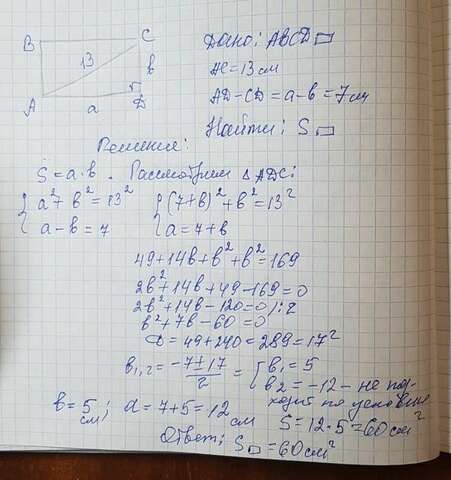 B C
13 в
A a D
Дано: ABCD □
AC = 13 см
AD - CD = a - в = 7 см
Найти: S □
Решение:
S = a · в . Рассмотрим Δ ADC:
{ a² + в² = 13² { (7 + в)² + в² = 13²
{ a - в = 7 { a = 7 + в
49 + 14в + в² + в² = 169
2в² + 14в + 49 - 169 = 0
2в² + 14в - 120 = 0 / : 2
в² + 7в - 60 = 0
D = 49 + 240 = 289 = 17²
в₁,₂ = (-7 ± 17) / 2 = { в₁ = 5
в2 = -12 - не под-
ходит по условию
в = 5 см ; a = 7 + 5 = 12 см S = 12 · 5 = 60 см²
Ответ: S □ = 60 см²